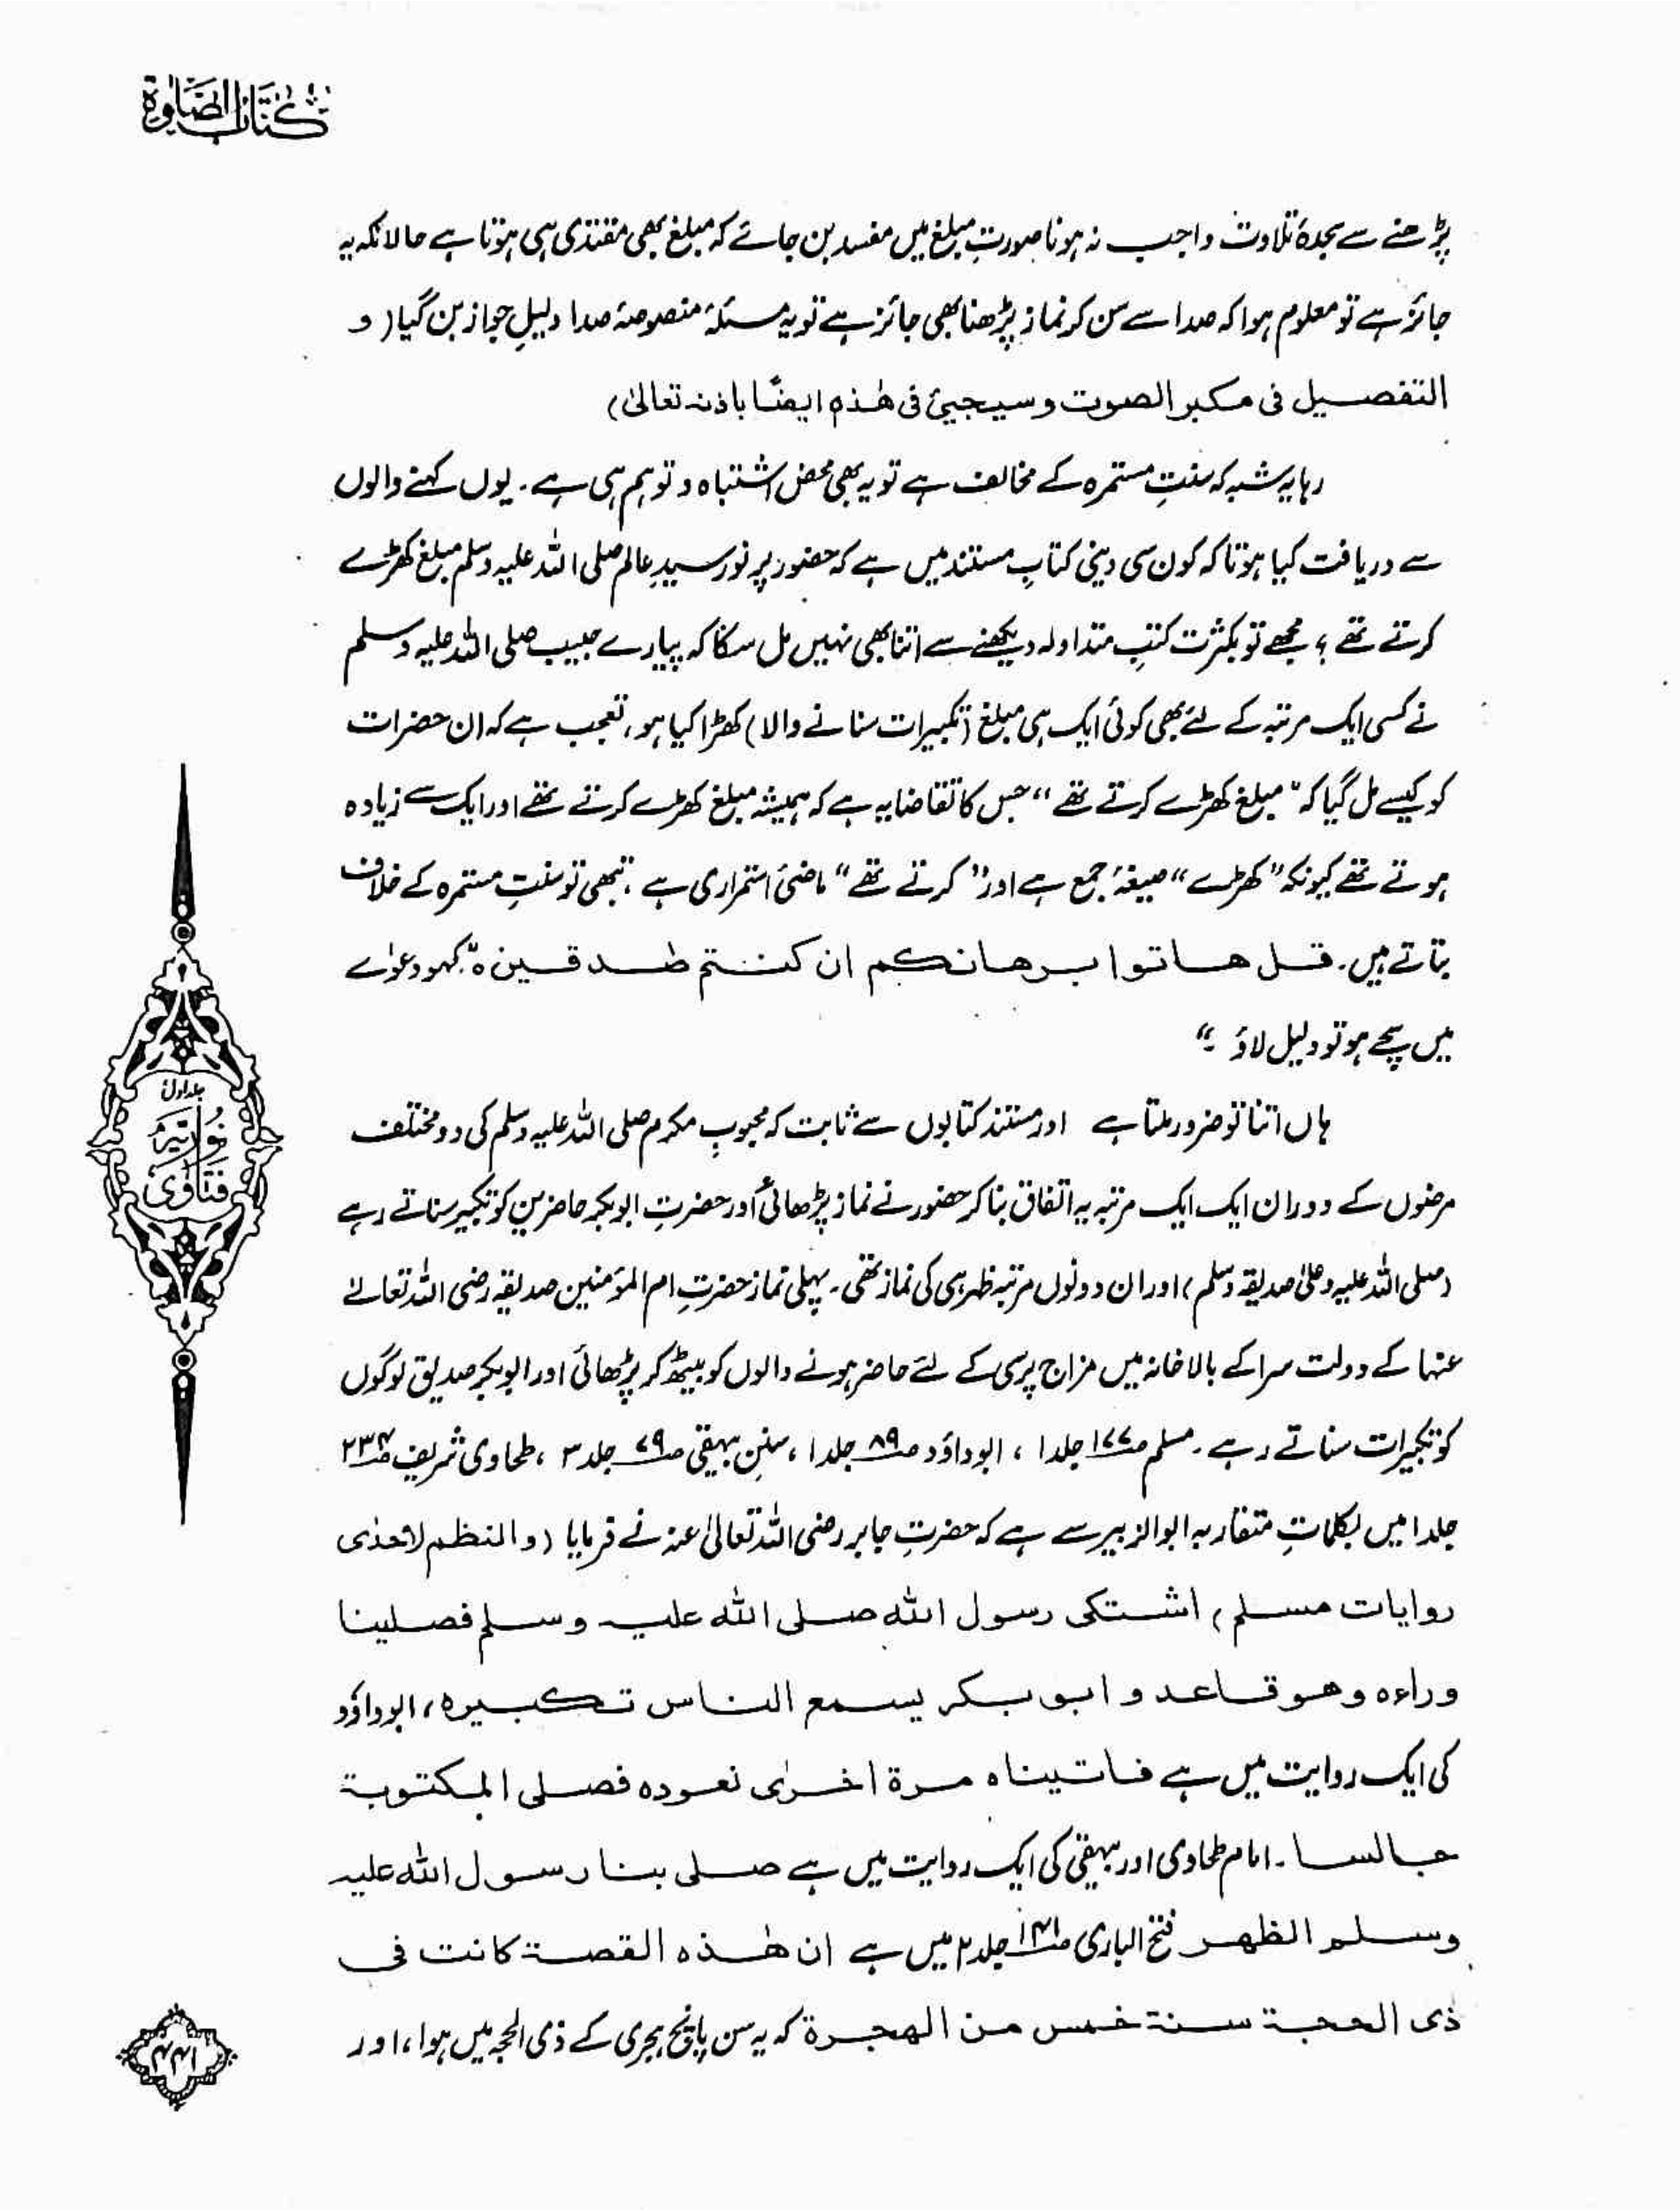 کتاب الصلوٰۃ
پڑھنے سے سجدۂ تلاوت واجب نہ ہونا صورتِ مبلغ میں مفسد بن جائے کہ مبلغ بھی مقتدی ہی ہوتا ہے حالانکہ یہ
جائز ہے تو معلوم ہوا کہ صدا سے سن کر نماز پڑھنا بھی جائز ہے تو یہ مسئلۂ منصوصۂ صدا دلیلِ جواز بن گیا (و
التفصیل فی مکبر الصوت و سیجیئ فی ھٰذہ ایضًا باذنہ تعالیٰ)
رہا یہ شبہ کہ سنتِ مستمرہ کے مخالف ہے تو یہ بھی محض اشتباہ و توہم ہی ہے۔ یوں کہنے والوں
سے دریافت کیا ہوتا کہ کون سی دینی کتابِ مستند میں ہے کہ حضور پر نور سیدِ عالم صلی اللہ علیہ وسلم مبلغ کھڑے
کرتے تھے ؟ مجھے تو بکثرت کتبِ متداولہ دیکھنے سے اتنا بھی نہیں مل سکا کہ پیارے حبیب صلی اللہ علیہ وسلم
نے کسی ایک مرتبہ کے لئے بھی کوئی ایک ہی مبلغ (تکبیرات سنانے والا) کھڑا کیا ہو، تعجب ہے کہ ان حضرات
کو کیسے مل گیا کہ "مبلغ کھڑے کرتے تھے" جس کا تقاضا یہ ہے کہ ہمیشہ مبلغ کھڑے کرتے تھے اور ایک سے زیادہ
ہوتے تھے کیونکہ "کھڑے" صیغۂ جمع ہے اور "کرتے تھے" ماضئ استمراری ہے ، تبھی تو سنتِ مستمرہ کے خلاف
بتاتے ہیں۔ قل ھاتوا برھانکم ان کنتم صٰدقین ہ "کہو دعوٰے
میں سچے ہو تو دلیل لاؤ ۔"
ہاں اتنا تو ضرور ملتا ہے اور مستند کتابوں سے ثابت کہ محبوبِ مکرم صلی اللہ علیہ وسلم کی دو مختلف
مرضوں کے دوران ایک ایک مرتبہ یہ اتفاق بنا کر حضور نے نماز پڑھائی اور حضرتِ ابوبکر حاضرین کو تکبیر سناتے رہے
(صلی اللہ علیہ وعلیٰ صدیقہ وسلم) اور ان دونوں مرتبہ ظہر ہی کی نماز تھی۔ پہلی نماز حضرتِ ام المؤمنین صدیقہ رضی اللہ تعالےٰ
عنہا کے دولت سرا کے بالاخانہ میں مزاج پرسی کے لئے حاضر ہونے والوں کو بیٹھ کر پڑھائی اور ابوبکر صدیق لوگوں
کو تکبیرات سناتے رہے۔ مسلم صـ۱۷۷ جلد ۱ ، ابوداؤد صـ۸۹ جلد ۱ ، سننِ بہیقی صـ۷۹ جلد ۳ ، طحاوی شریف صـ۲۳۴
جلد ۱ میں بکلماتِ متقاربہ ابو الزبیر سے ہے کہ حضرتِ جابر رضی اللہ تعالیٰ عنہ نے فرمایا (و النظم لاحدٰی
روایات مسلم) اشتکی رسول اللہ صلی اللہ علیہ وسلم فصلینا
وراءہ وھو قاعد و ابو بکر یسمع الناس تکبیرہ، ابوداؤد
کی ایک روایت میں ہے فاتیناہ مرۃ اخرٰی نعودہ فصلی المکتوبۃ
جالسا۔ امام طحاوی اور بہیقی کی ایک روایت میں ہے صلی بنا رسول اللہ علیہ
وسلم الظھر فتح الباری صـ۱۴۱ جلد ۲ میں ہے ان ھٰذہ القصۃ کانت فی
ذی الحجۃ سنۃ خمس من الھجرۃ کہ یہ سن پانچ ہجری کے ذی الحجہ میں ہوا، اور
جلد اول
فتاوٰی نوریہ
۴۴۱